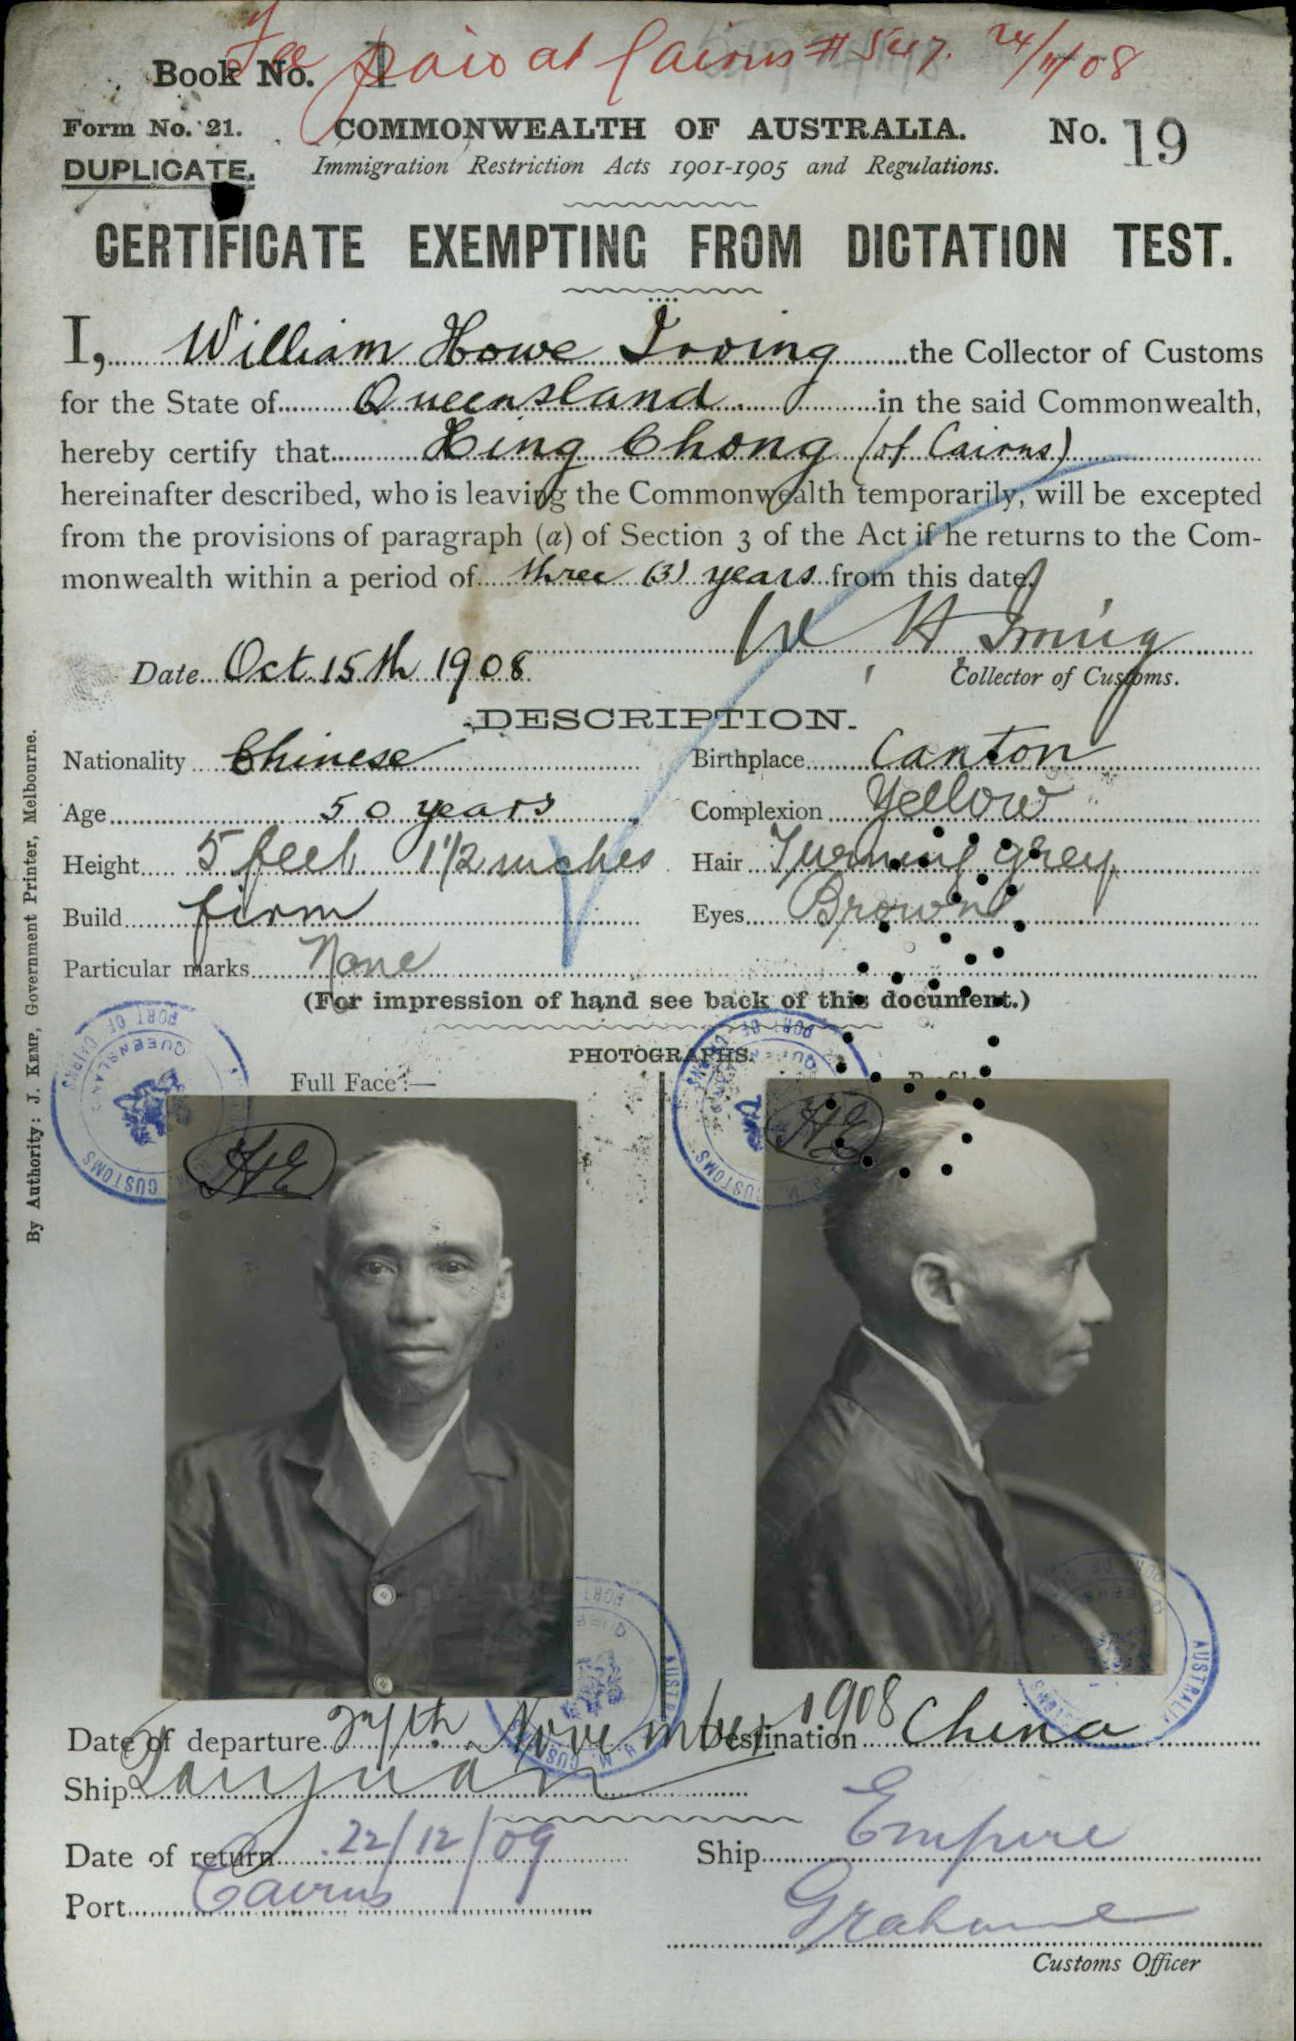 Fee paid at Cairns # 547. 24/11/08
Book No. 1
Form No. 21.
COMMONWEALTH OF AUSTRALIA.
No. 19
DUPLICATE.
Immigration Restriction Acts 1901-1905 and Regulations.
CERTIFICATE EXEMPTING FROM DICTATION TEST.
I, William Howe Irving the Collector of Customs
for the State of Queensland in the said Commonwealth,
hereby certify that Hing Chong (of Cairns)
hereinafter described, who is leaving the Commonwealth temporarily, will be excepted
from the provisions of paragraph (a) of Section 3 of the Act if he returns to the Com-
monwealth within a period of three (3) years from this date.
W H Irving
Date Oct 15th 1908
Collector of Customs.
DESCRIPTION.
Nationality Chinese
Birthplace Canton
Age 50 years
Complexion Yellow
Height 5 feet 1 1/2 inches
Hair Turning grey
Build firm
Eyes Brown
Particular marks None
(For impression of hand see back of this document.)
PHOTOGRAPHS.
Full Face :—
HE
HE
Date of departure 27th November 1908
Destination China
Ship Taiyuan
Date of return 22/12/09
Ship Empire
Port Cairns
Grahame
Customs Officer
By Authority: J. KEMP, Government Printer, Melbourne.